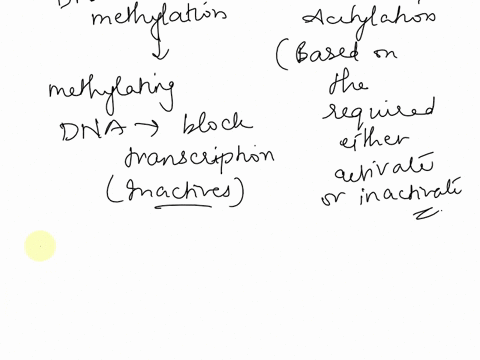 methylation
methylating
DNA → block
transcription
(Inactives)
Acitylation
(Based on
the
required
either
activate
or inactivate